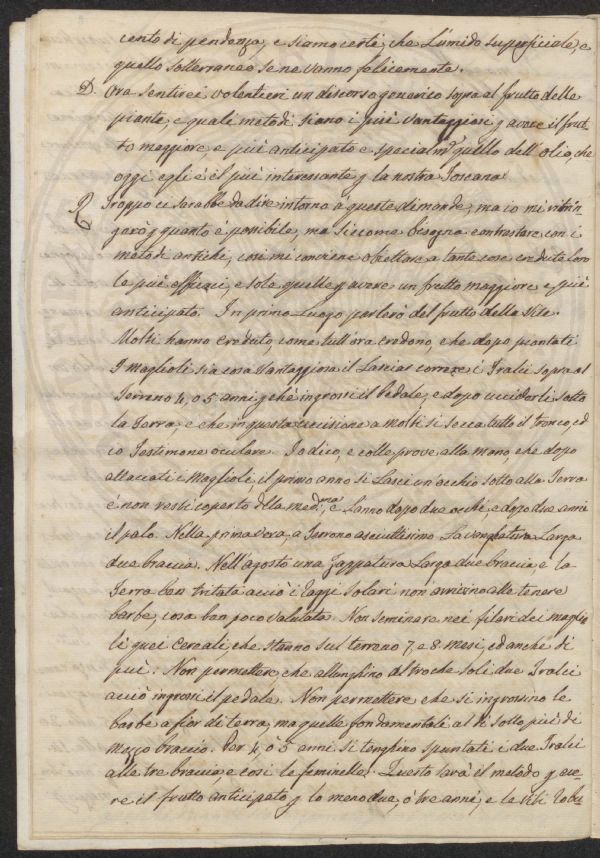 cento di pendenza, e siamo certi, che L'umido superficiale, e
quello sotterraneo se ne vanno felicemente.
D. Ora sentirei volentieri un discorso generico sopra al frutto delle
piante, e quali metodi siano i più vantaggiosi p avere il frut
to maggiore, e più anticipato e specialm.e quello dell'olio, che
oggi egli è il più interessante p la nostra Toscana
R Troppo ci sarebbe da dire intorno a queste dimande, ma io mi ristrin
gerò p quanto è possibile, ma siccome bisogna contrastare con i
metodi antichi, così mi conviene obiettare a tante cose credute loro
le più efficaci, e sole quelle p avere un frutto maggiore e più
anticipato. In primo Luogo parlerò del frutto della Vite.
Molti hanno creduto, come tutt'ora credono, che dopo piantati
I maglioli sia cosa vantaggiosa il Lasciar correre i Tralci sopra al
Terreno 4, o 5 anni p chè ingrossi il Pedale, e dopo ucciderli sotto
la Terra, e che in questa uccisione a molti si secca tutto il tronco, ed
io Testimone oculare. Io dico, e colle prove alla mano, che dopo
allacciati i Maglioli il primo anno si Lasci un'occhio sotto alla Terra
é non resti coperto della med.ma, e L'anno dopo due occhi e dopo due anni
il palo. Nella primavera, a Terreno asciuttissimo La vangatura Larga
due braccia. Nell'agosto una Zappatura Larga due braccia e la
Terra ben tritata acciò i raggi solari non arrivino alle tenere
barbe, cosa ben poco valutata. Non seminare nei filari dei maglio
li quei cereali, che stanno sul terreno 7, e 8 mesi, ed anche di
più. Non permettere, che allunghino altro che soli due Tralci
acciò ingrossi il pedale. Non permettere che si ingrossino le
barbe a fior di terra, ma quelle fondamentali al di sotto più di
mezzo braccio. Per 4, o 5 anni si tenghino spuntati i due Tralci
alle tre braccia, e così le feminelle. Questo sarà il metodo p ave-
re il frutto anticipato p lo meno due, o tre anni, e le Viti robu